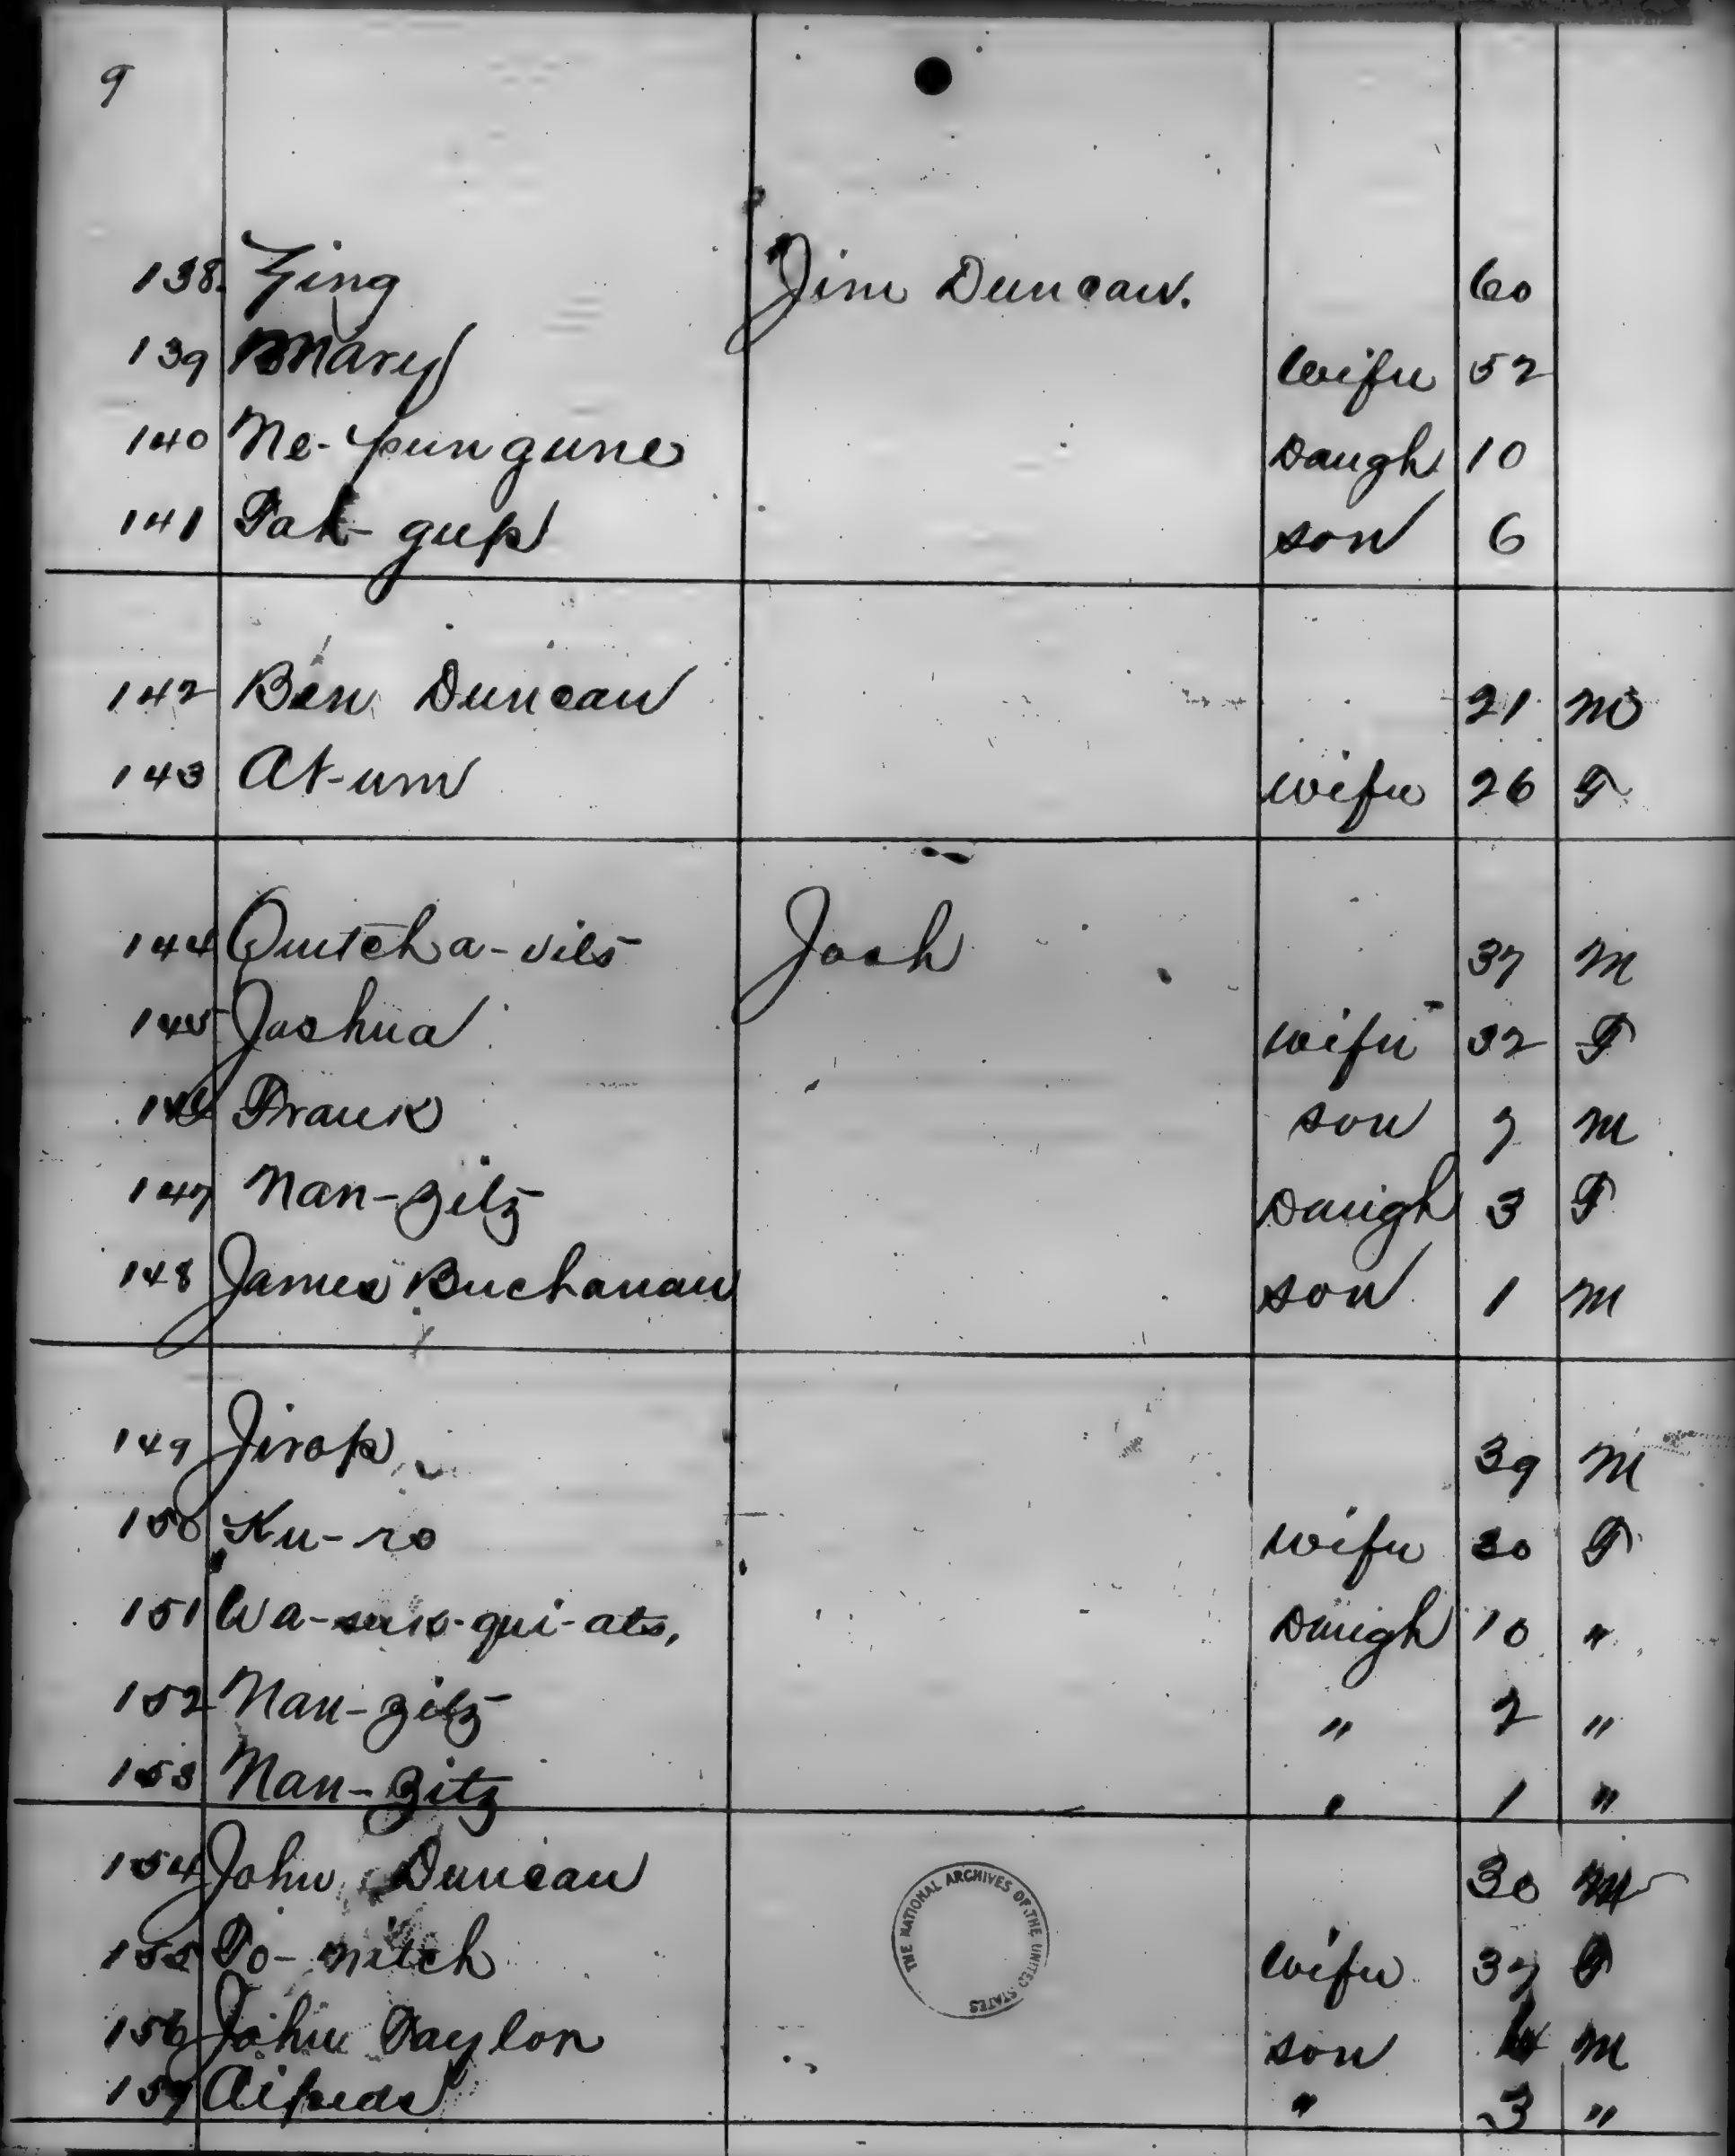 9
138. Ging Jim Duncan. 60
139 Mary wife 52
140 Ne-pungune Daugh 10
141 Pah-gup son 6
142 Ben Duncan 21 M
143 At-um wife 26 F
144 Quitch a-vits Josh 37 M
145 Joshua wife 32 F
146 Frank son 7 M
147 Nan-zitz Daugh 3 F
148 James Buchanan son 1 M
149 Jirop 39 M
150 Ku-ro wife 30 F
151 Wa-suk-qui-ats, Daugh 10 "
152 Nan-zitz " 2 "
153 Nan-zitz " 1 "
154 John Duncan 30 M
155 Po-nitch wife 37 F
156 John Taylor son M
157 " 3 "
THE NATIONAL ARCHIVES OF THE UNITED STATES